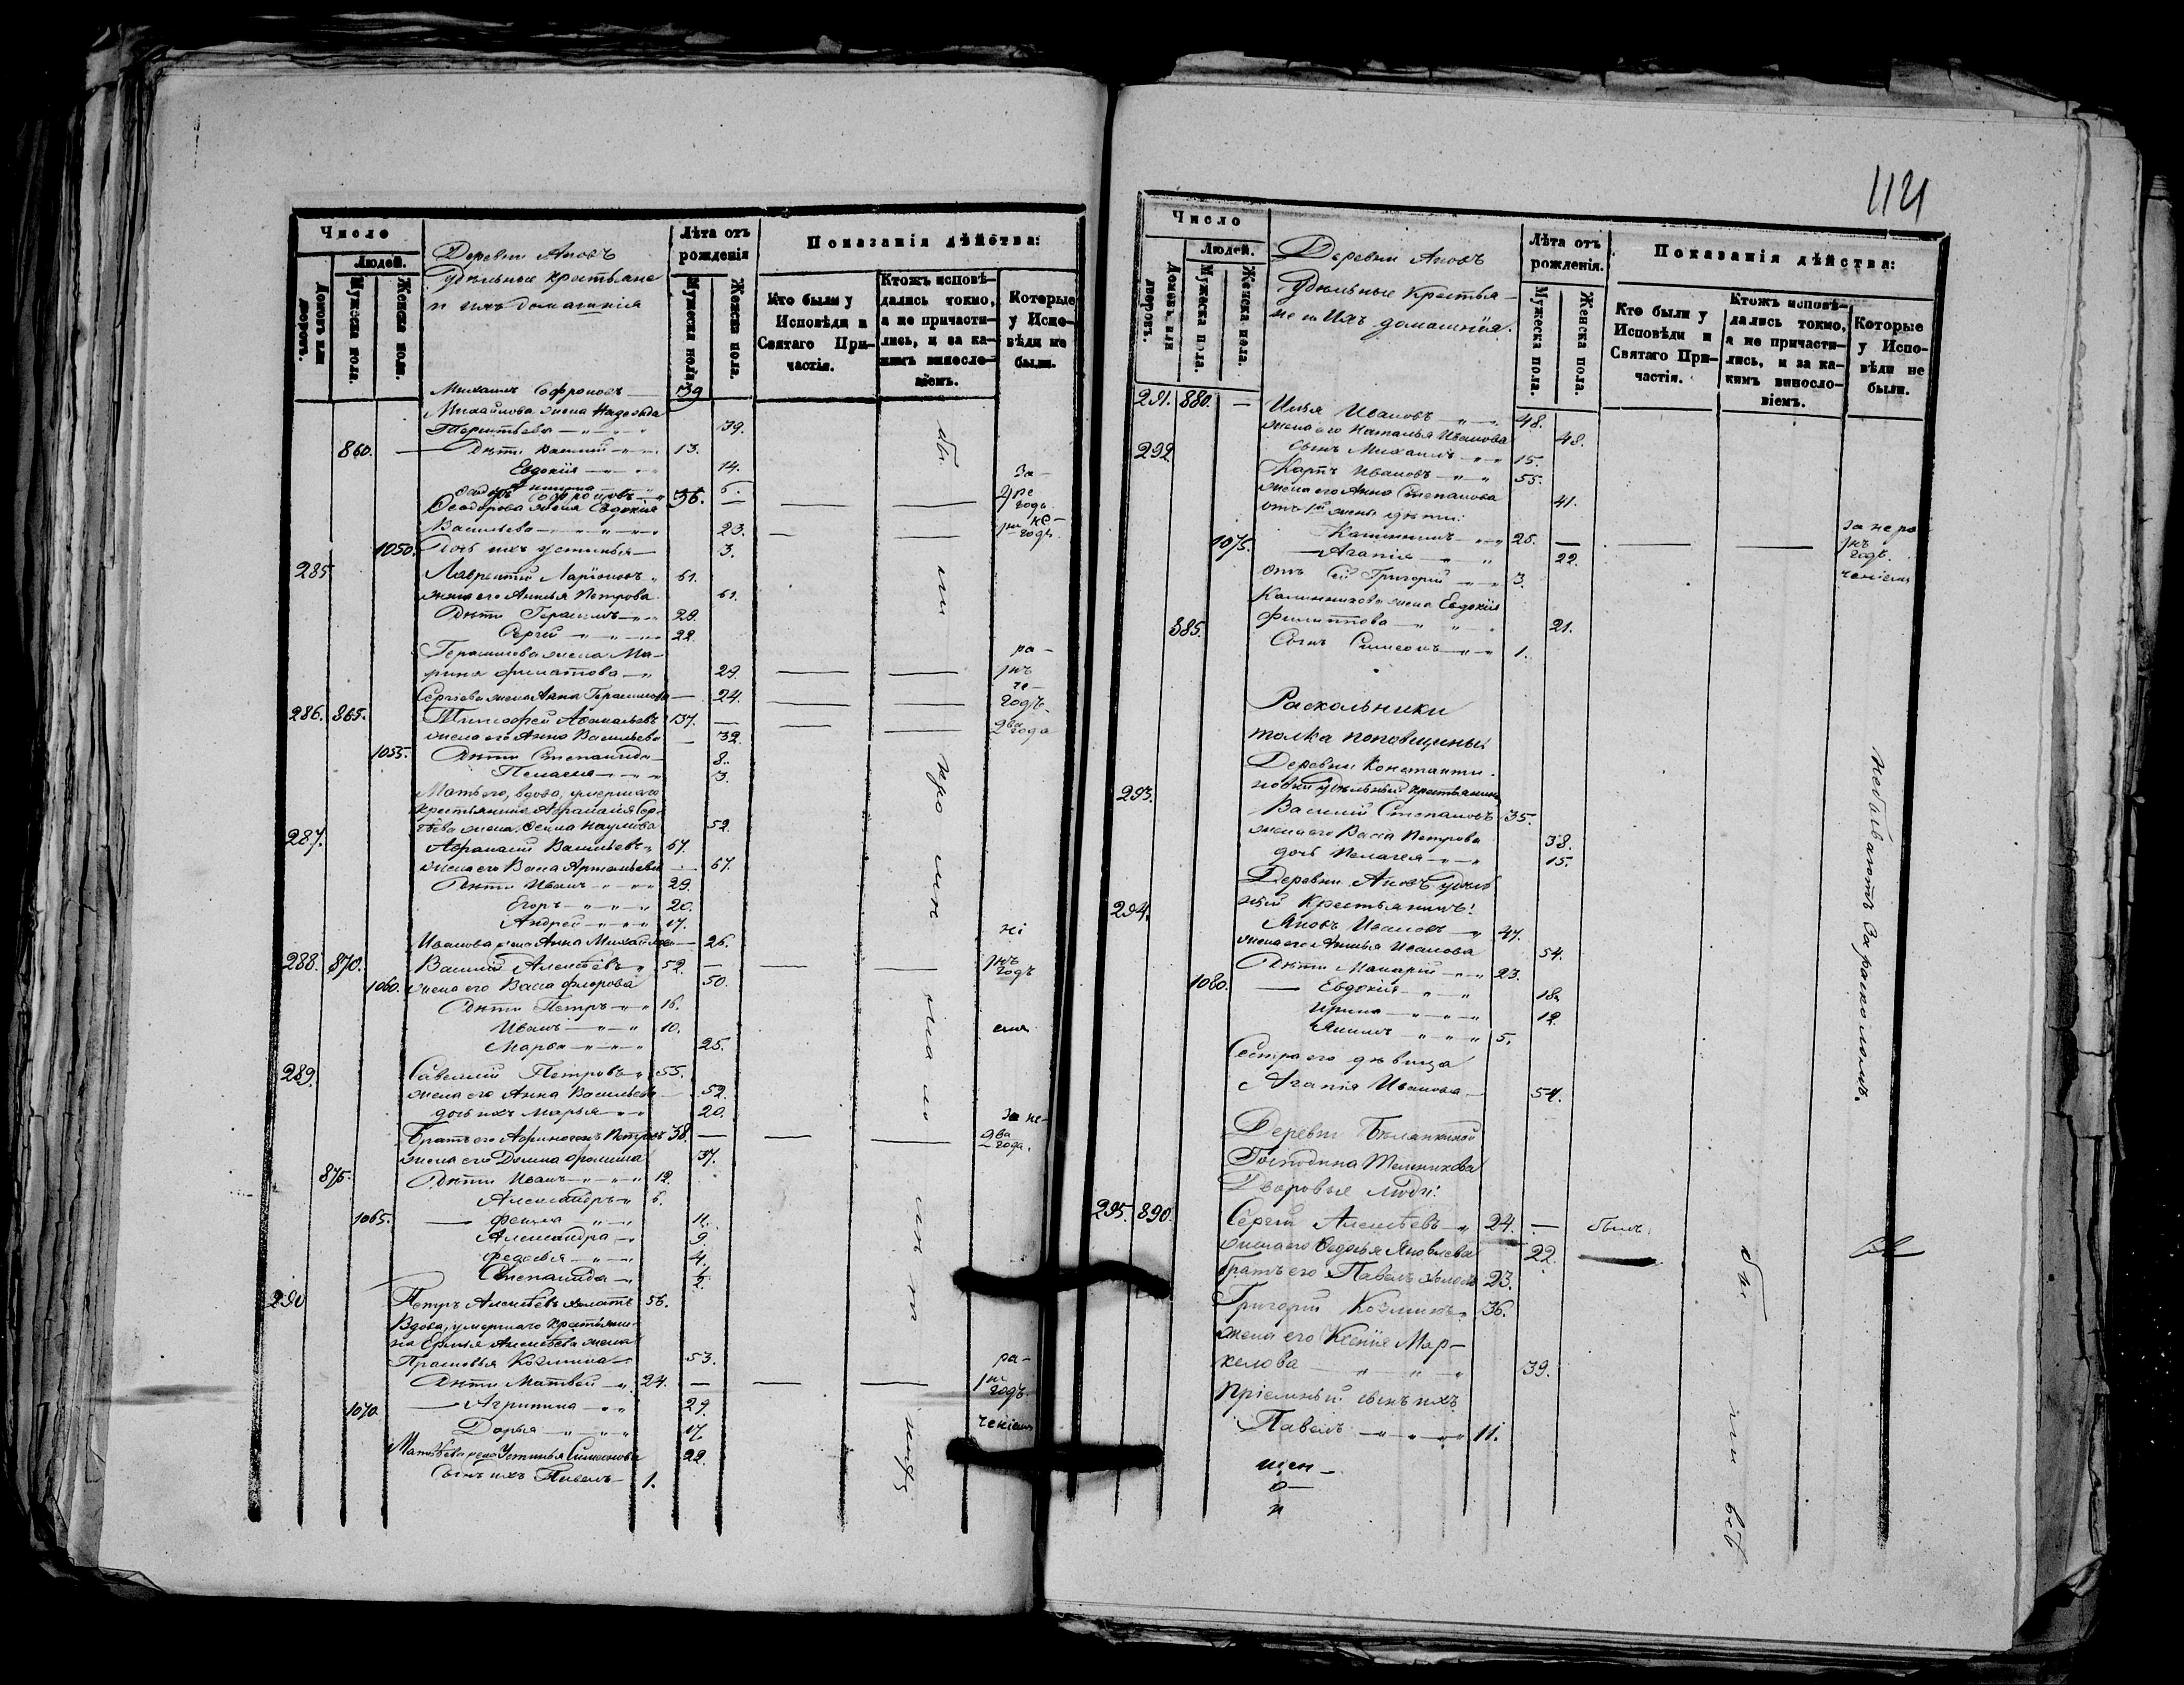 Число
Людей.
Домовъ или дворовъ.
Мужеска пола.
Женска пола.
Деревни Ановъ
Удѣльные крестьяне
и ихъ домашнія
Лѣта отъ рожденія
Мужеска пола.
Женска пола.
Показанія дѣйства:
Кто были у Исповѣди и Святаго Причастія.
Ктожъ исповѣдались токмо, а не причастились, и за какимъ винословіемъ.
Которые у Исповѣди не были.
Михаилъ Софроновъ 39
Михайлова жена Надежда
Терентьева 39.
860. Дѣти Василій 13.
Евдокія 14.
6.
Ѳеодоръ Софроновъ 36.
Ѳеодорова жена Евдокія
Васильева 23.
1050. Дочь ихъ Устинья 3.
285 Лаврентій Ларіоновъ 61.
жена его Анисья Петрова 61.
Дѣти Герасимъ 28.
Сергій 22.
Герасимова жена Ма-
рина Филатова 29.
Сергіева жена Анна Герасимова 24.
286. 865. Тимофей Афанасьевъ 37.
жена его Анна Васильева 39.
1055. Дѣти Степанида 8.
Пелагея 3.
Мать его, вдова, умершаго
крестьянина Афанасія Сер-
гѣева жена Ѳекла Наумова 52.
287. Афанасій Васильевъ 67.
жена его Васса Артемьева 67.
Дѣти Иванъ 29.
Егоръ 20.
Андрей 17.
Иванова жена Анна Михайлова 26.
288. 870. Василій Алексѣевъ 52.
1060. жена его Васса Фирова 50.
Дѣти Петръ 16.
Иванъ 10.
Марфа 25.
289. Савелій Петровъ 55.
жена его Анна Васильева 52.
дочь ихъ Марья 20.
Братъ его Афиногенъ Петровъ 38.
жена его Домна Фомина 37.
875. Дѣти Иванъ 12.
Александръ 6.
1065. Фекла 11.
Александра 9.
Федосья 4.
Степанида
290 Петръ Алексѣевъ холостъ 56.
Вдова, умершаго крестьяни-
на Ефима Алексѣева жена
Прасковья Козмина 53.
Дѣти Матвей 24.
1070. Агрипина 29.
Дарья 17.
Матвѣева жена Устинья Симеонова 22.
Сынъ ихъ Павелъ 1.
1121
Число
Людей.
Домовъ или дворовъ.
Мужеска пола.
Женска пола.
Деревни Ановъ
Удѣльные Крестья-
не и Ихъ домашнія.
Лѣта отъ рожденія.
Мужеска пола.
Женска пола.
Показанія дѣйства:
Кто были у Исповѣди и Святаго Причастія.
Ктожъ исповѣдались токмо, а не причастились, и за какимъ винословіемъ.
Которые у Исповѣди не были.
291. 880. Илья Ивановъ 48.
жена его Наталья Иванова 48.
Сынъ Михаилъ 15.
292 Карпъ Ивановъ 55.
жена его Анна Степанова 41.
отъ 1й жены дѣти:
Калинникъ 25.
1075. Агапія 22.
отъ сей Григорій 3.
Калинникова жена Евдокія
Филиппова 21.
885. Сынъ Симеонъ 1.
Раскольники
толка поповщины.
Деревни Константи-
новки удѣльный крестьянинъ
293. Василій Степановъ 35.
жена его Васса Петрова 38.
дочь Пелагея 15.
Деревни Ановъ удѣль
ный Крестьянинъ:
294. Яковъ Ивановъ 47.
жена его Анисья Иванова 54.
Дѣти Макарій 23.
1080. Евдокія 18.
Ирина 12.
Акимъ 5.
Сестра его дѣвица
Агапія Иванова 54.
небываютъ За расколомъ.
Деревни Бѣланкиной
Господина
Дворовые люди:
295. 890. Сергій Алексѣевъ 24. былъ
жена его Федосья Яковлева 22.
Братъ его Павелъ холостъ 23.
Григорій Козминъ 36.
жена его Ксенія Мар-
келова 39.
Пріемный сынъ ихъ
Павелъ 11.